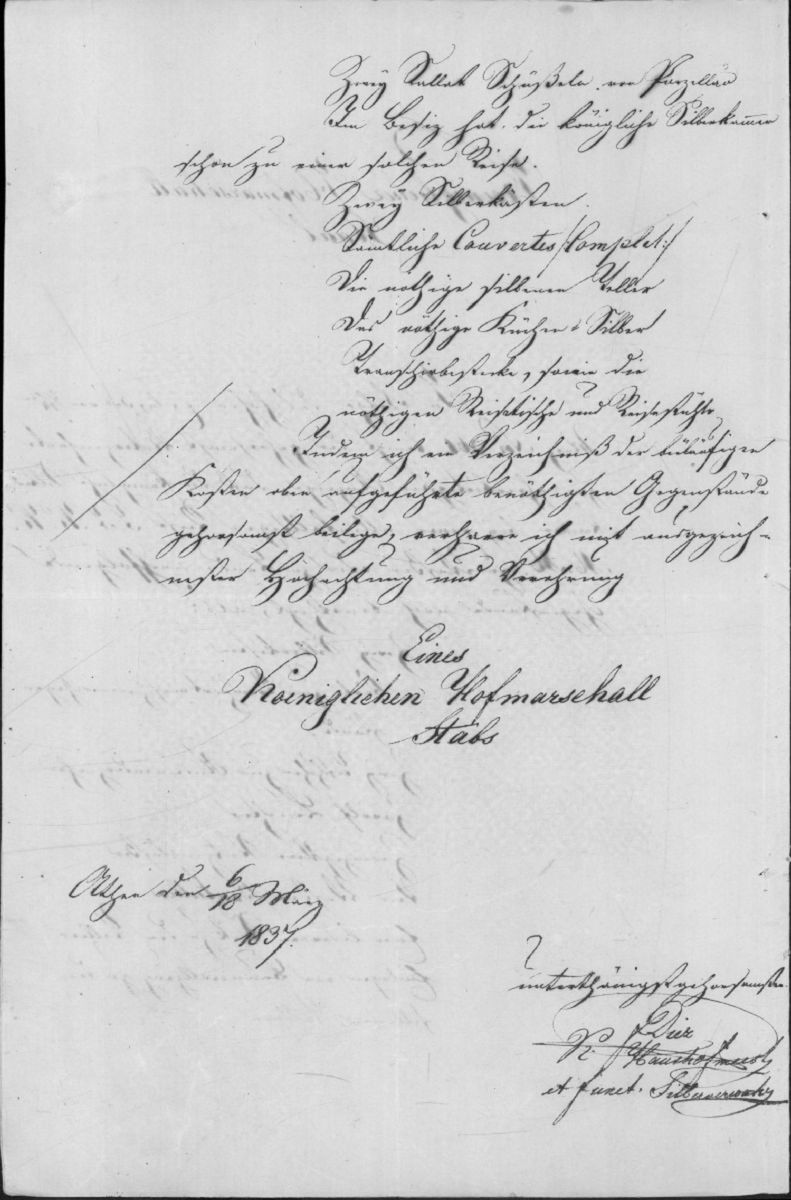 Zwey Sallat Schüßeln von Porzellan
Im Besiz hat die königliche Silberkammer
schon zu einer solchen Reise.
Zwey Silberkästen.
Samtliche Couvertes /:Complet:/
Die nöthige silbernen Teller
Das nöthige Küchen Silber
Transchirbestecke, sowie die
nöthigen Reisetische und Reisestühle
Indem ich ein Verzeichniß der beiläufigen
Kosten oben aufgeführte benöthigten Gegenstände
gehorsamst beilege, verharre ich mit ausgezeich-
netster Hochachtung und Verehrung
Eines
Koeniglichen Hofmarschall
Stabs
Athen den 6/18 März
1837.
unterthänigst gehorsamster
K. Haushofmeister
et funct. Silberverwalter